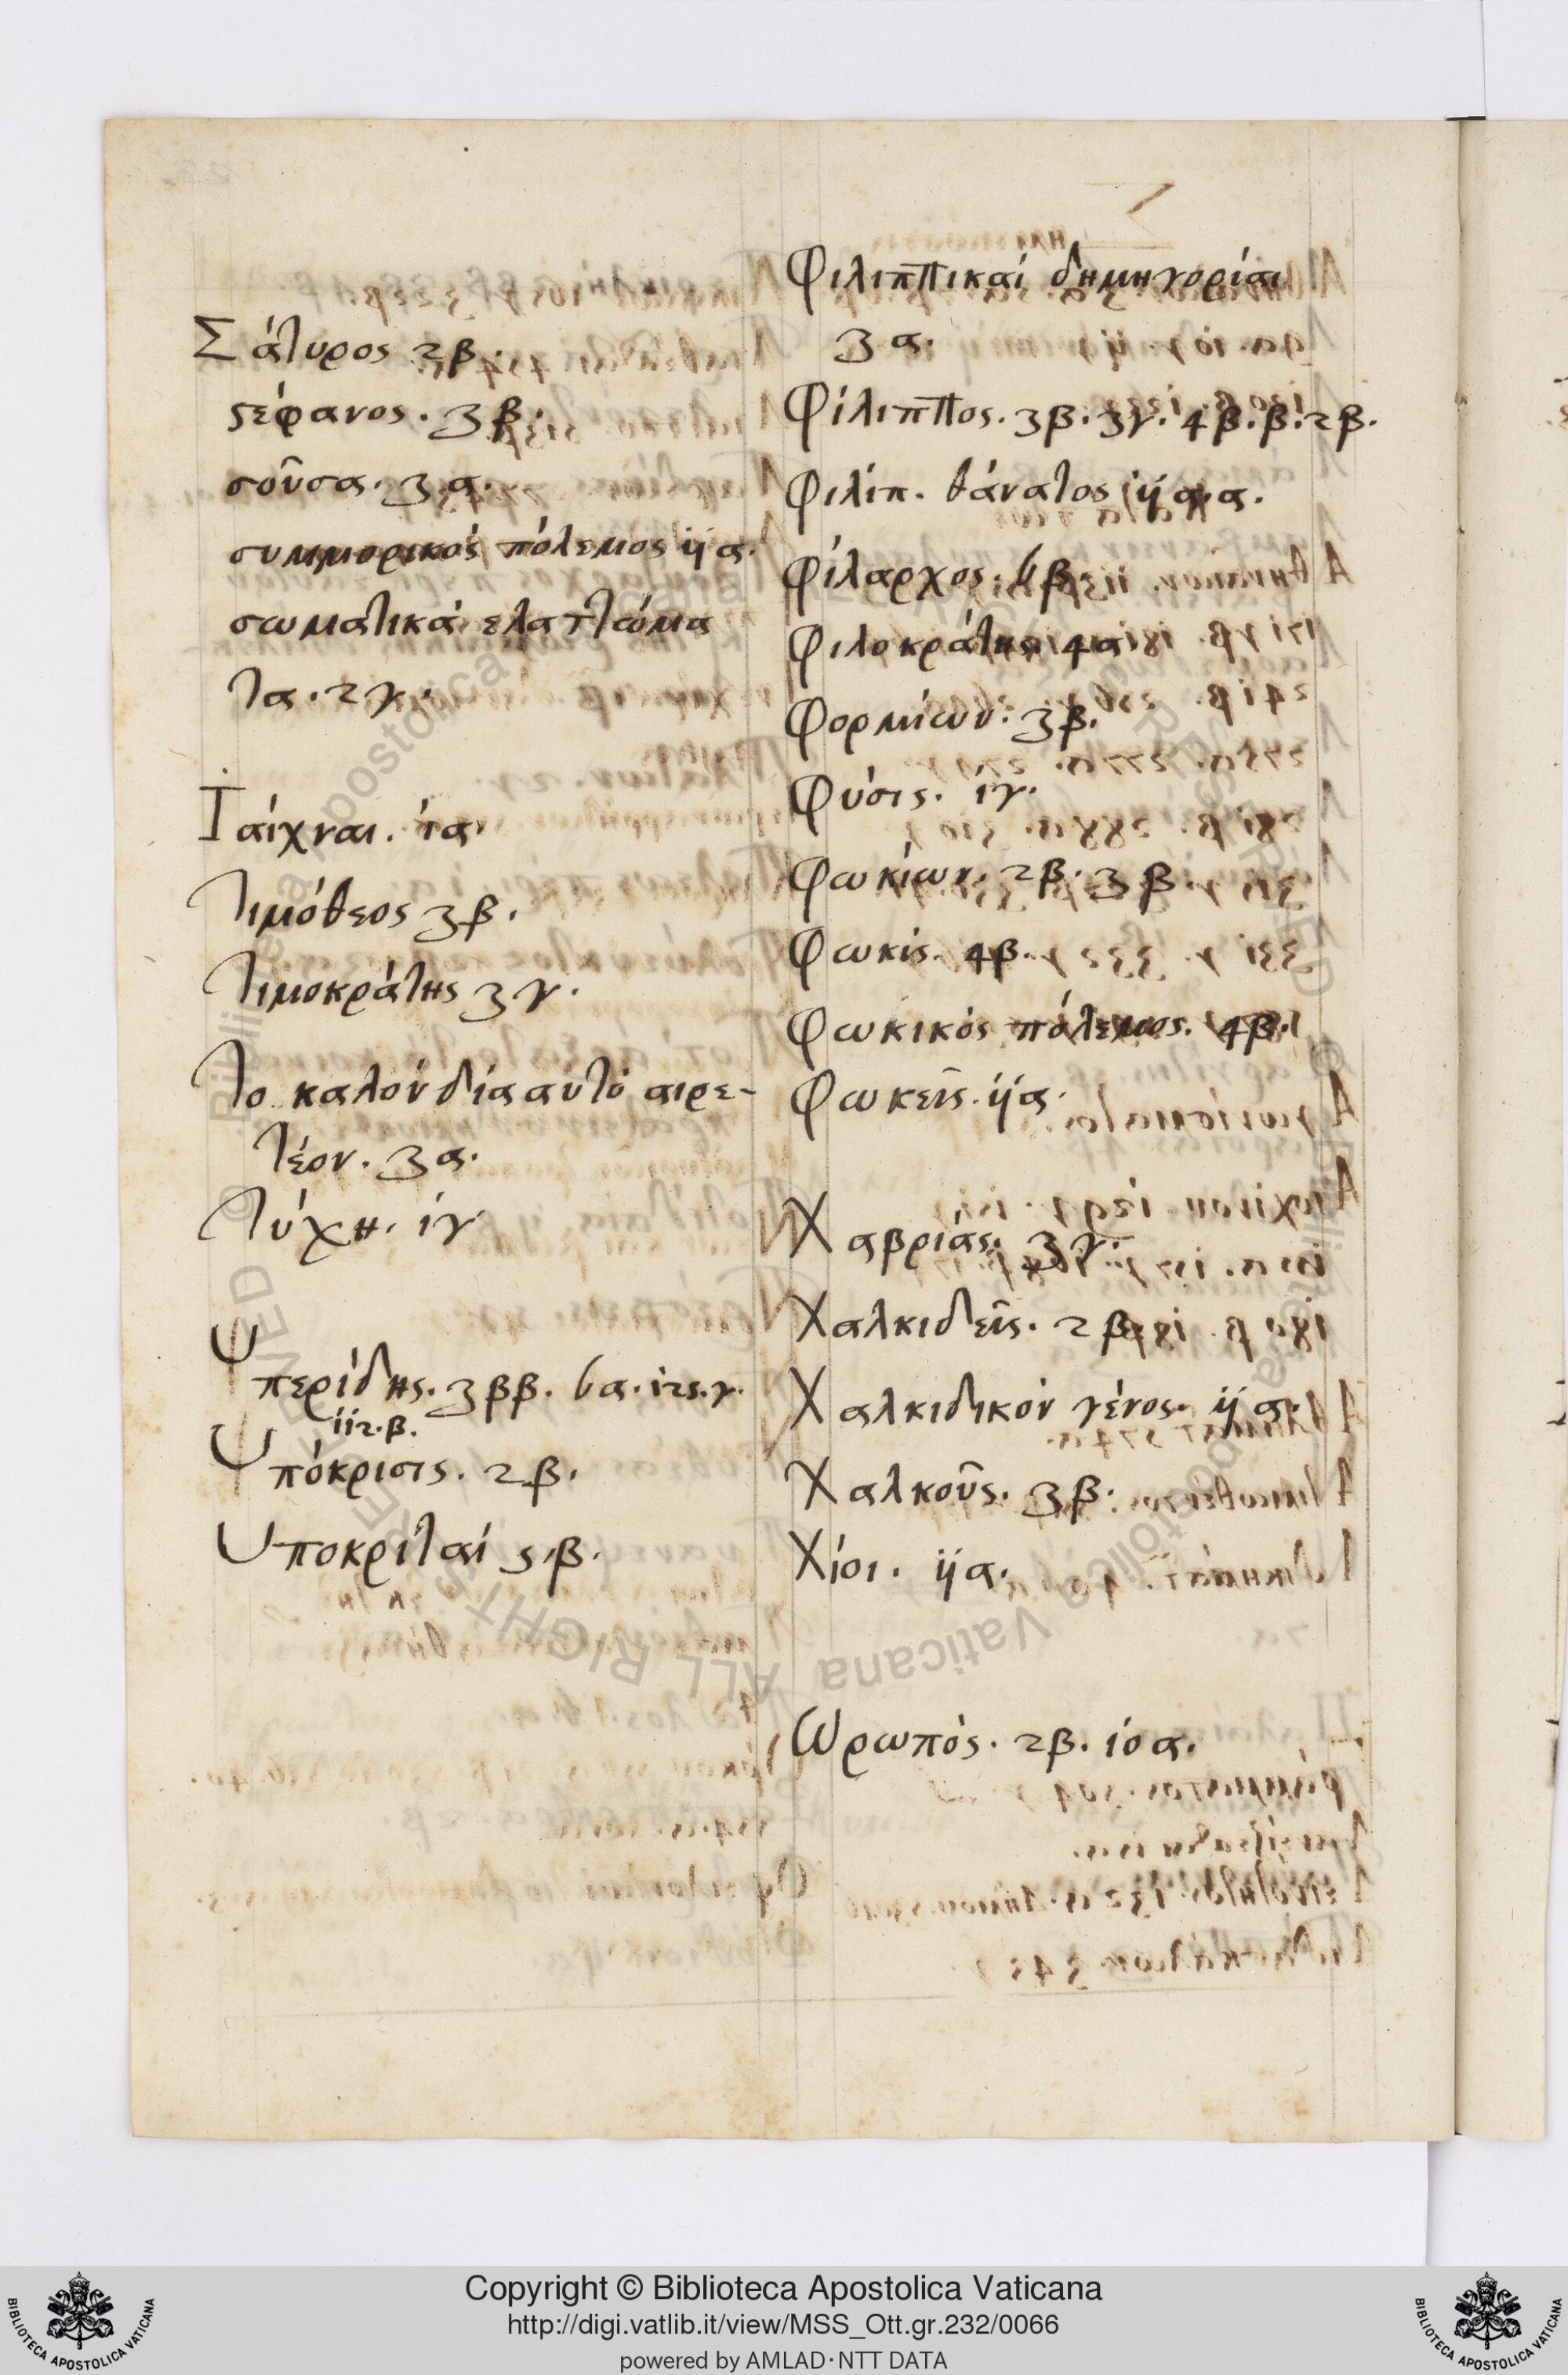 Σάτυρος 2β.
ϛέφανος. 3β.
σοῦσα. 3α.
συμμορικὸς πόλεμος ij α.
σωματικὰ ελαττώμα
τα. 2γ.
Τάίχναι. ία.
Τιμόθεος 3β.
Τιμοκράτης 3γ.
Το καλὸν δία αυτὸ αιρε-
τέον. 3α.
Τύχη. ίγ
Υπερίδης. 3ββ. 6α. i2s. γ.
ii2. β.
Υπόκρισις. 2β.
Υποκριταί 5.β.
Φιλιππικαί δημηγορίαι
3α.
Φίλιππος. 3β. 3γ. 4β. β. 2β.
Φιλίπ. θάνατος ij α. α.
Φίλαρχος. 6β.
Φιλοκράτης 4α
Φορμίων. 3β.
Φύσις. ίγ.
Φωκίων. 2β. 3β
Φωκίς. 4β.
Φωκικὸς πόλεμος. 4β.
Φωκεῖς. ij α.
Χαβριάς. 3γ.
Χαλκιδεῖς. 2β.
Χαλκιδικὸν γένος. ij α.
Χαλκοῦς. 3β.
Χίοι. ij α.
Ωρωπὸς. 2β. ίο α.
Copyright © Biblioteca Apostolica Vaticana
http://digi.vatlib.it/view/MSS_Ott.gr.232/0066
powered by AMLAD·NTT DATA
BIBLIOTECA APOSTOLICA VATICANA
BIBLIOTECA APOSTOLICA VATICANA